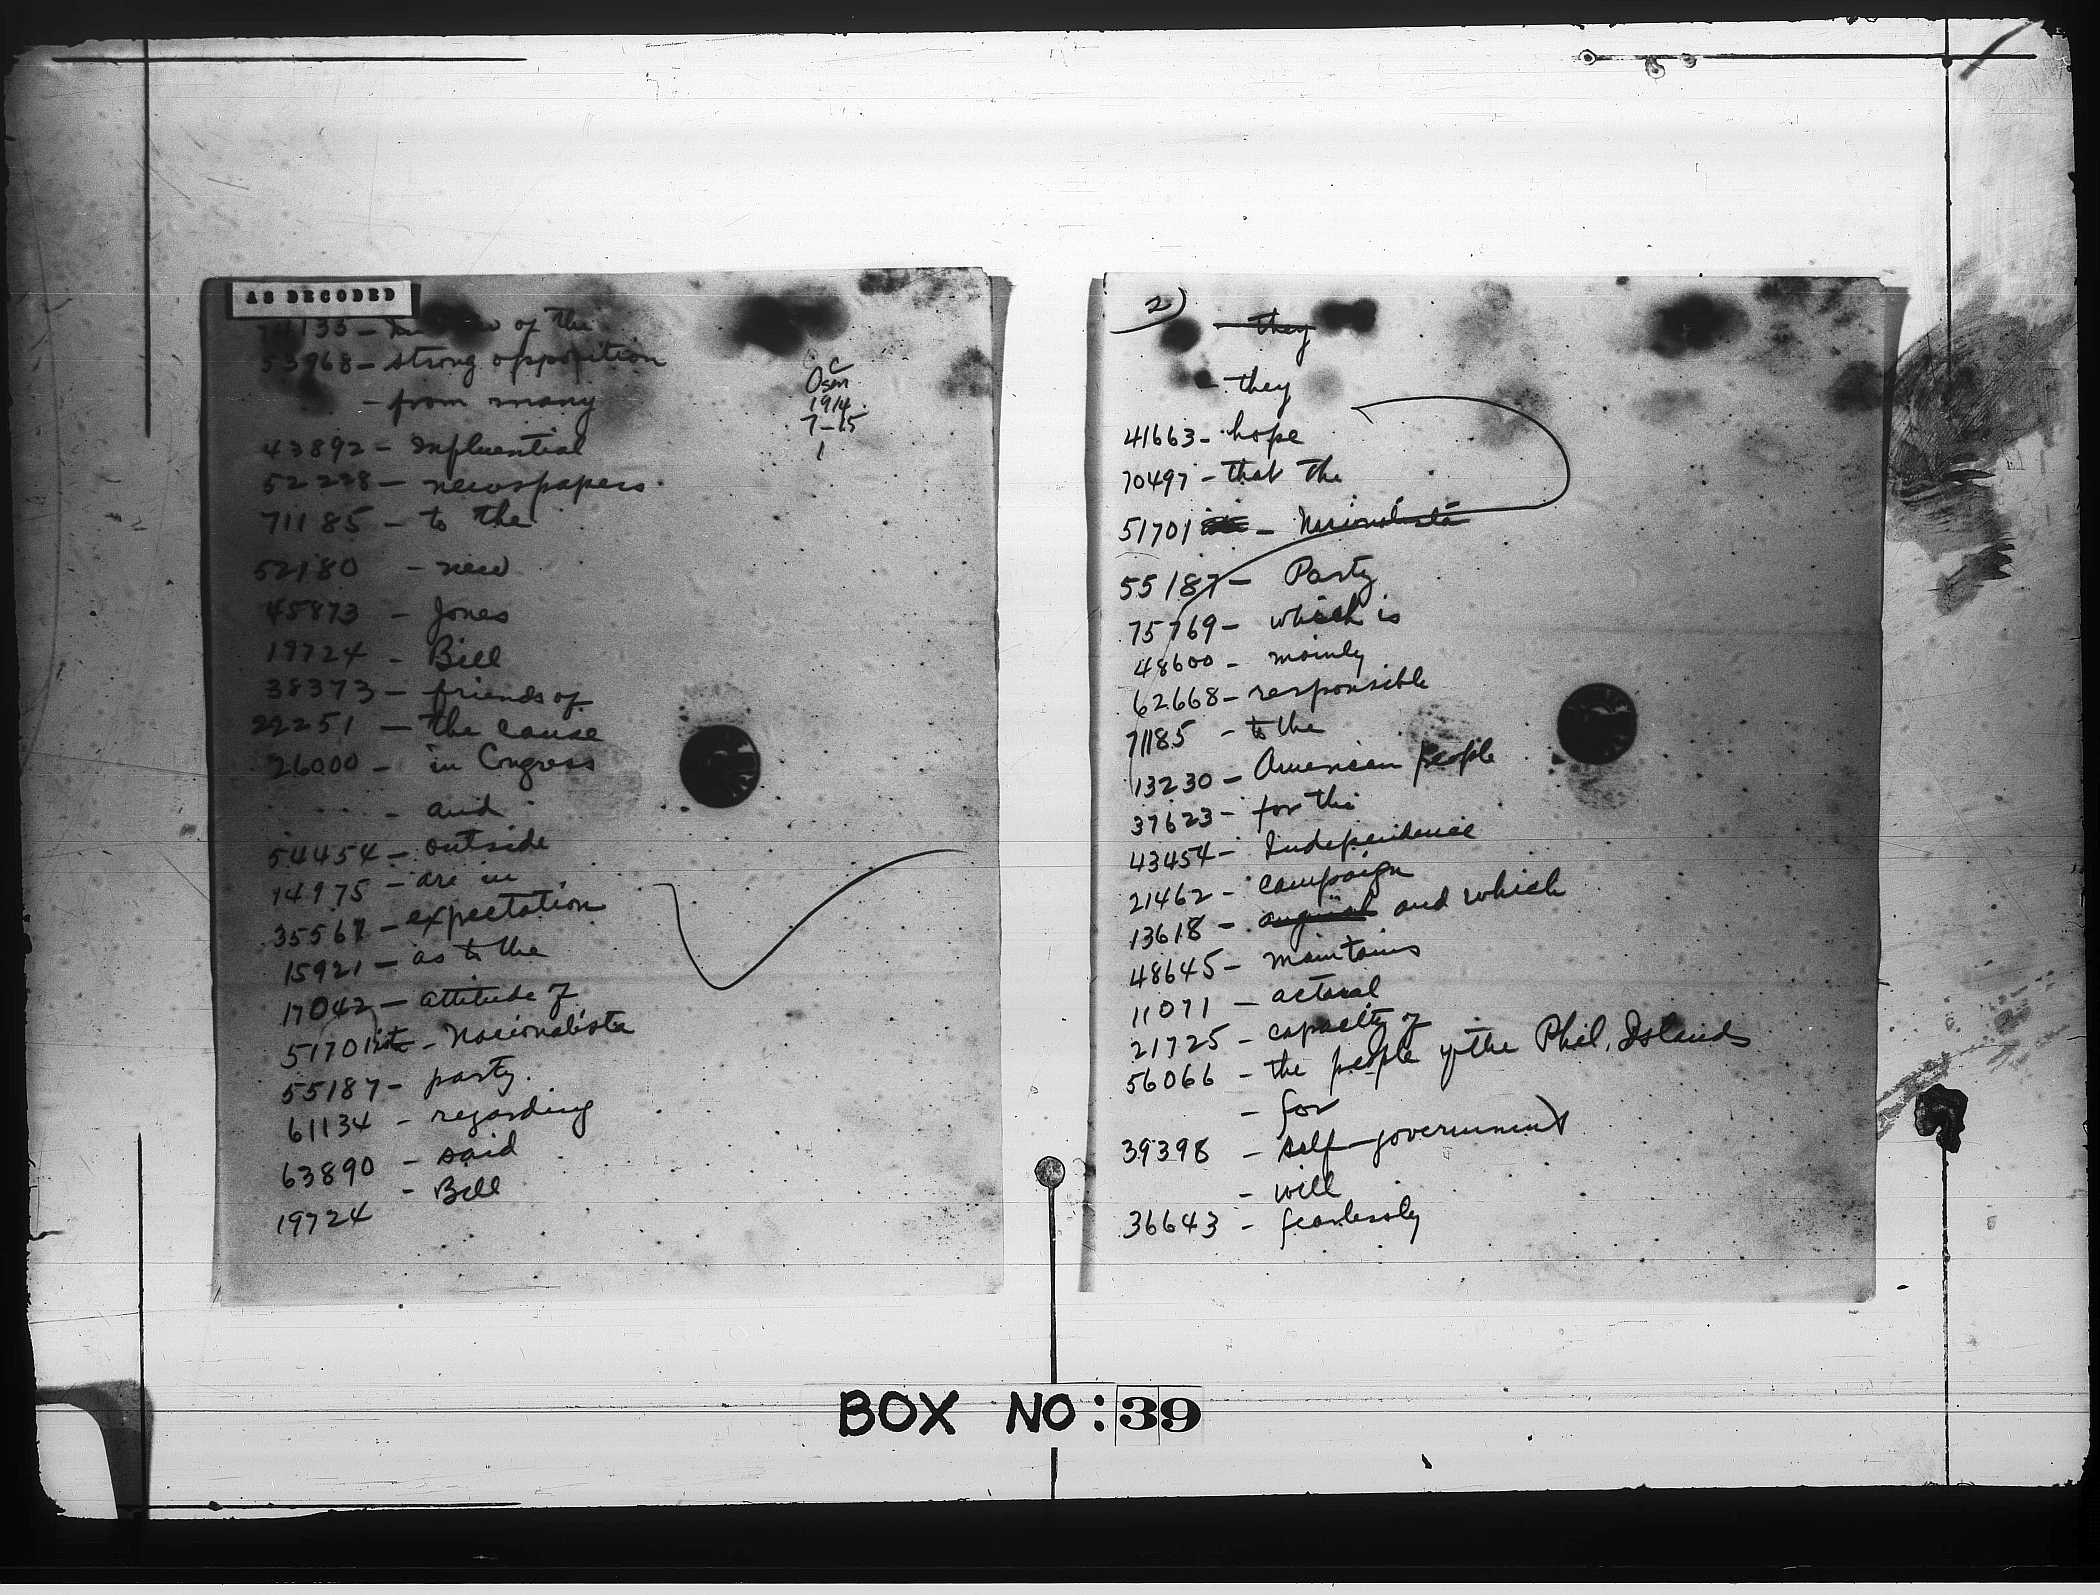 AS DECODED
74133 - In view of the
53968 - strong opposition
- from many
43892 - Influential
52228 - newspapers
71185 - to the
52180 - new
45873 - Jones
19724 - Bill
38373 - friends of
22251 - the cause
26000 - in Congress
- and
54454 - outside
14975 - are in
35567 - expectation
15921 - as to the
17042 - attitude of
51701 - Nacionalista
55187 - party.
61134 - regarding
63890 - said
19724 - Bill
C
Osm
1914
7-15
1
2)
they
- they
41663 - hope
70497 - that the
51701 - Nacionalista
55187 - Party
75769 - which is
48600 - mainly
62668 - responsible
71185 - to the
13230 - American people
37623 - for the
43454 - Independence
21462 - campaign
13618 - and which
48645 - maintains
11071 - actual
21725 - capacity of
56066 - the people of the Phil. Islands
- for
39398 - self-government
- will
36643 - fearlessly
BOX NO: 39